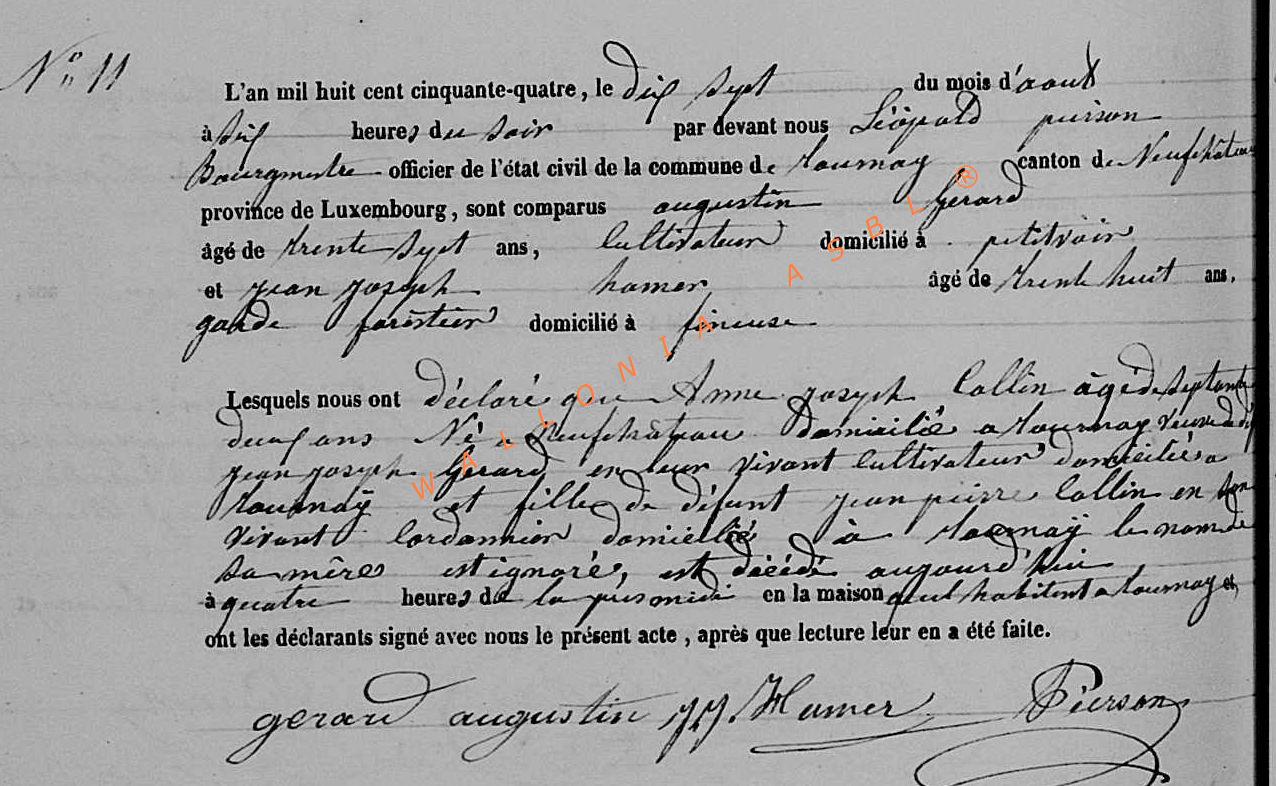 N° 11
L'an mil huit cent cinquante-quatre, le dix sept du mois d'aout
à six heures du soir par devant nous Léopold pierson
Bourgmestre officier de l'état civil de la commune de tournay canton de Neufchâteau
province de Luxembourg, sont comparus augustin Gerard
âgé de trente sept ans, Cultivateur domicilié à petitvoir
et jean joseph hamer âgé de trente huit ans,
garde forêstier domicilié à fineuse
Lesquels nous ont déclaré que Anne joseph Collin âgé de septante
deux ans Né a Neufchâteau Domicilié a tournay veuve de
jean joseph Gerard en leur vivant Cultivateur domiciliés a
tournaÿ et fille de défunt jean pierre Collin en son
vivant Cordonnier domicilié à tournaÿ le nom de
sa mêre est ignoré, est décédé aujourd'hui
à quatre heures de la presmidi en la maison quel habitent a tournay et
ont les déclarants signé avec nous le présent acte, après que lecture leur en a été faite.
gerard augustin JJ. Hamer Pierson
WALLONIA ASBL ®